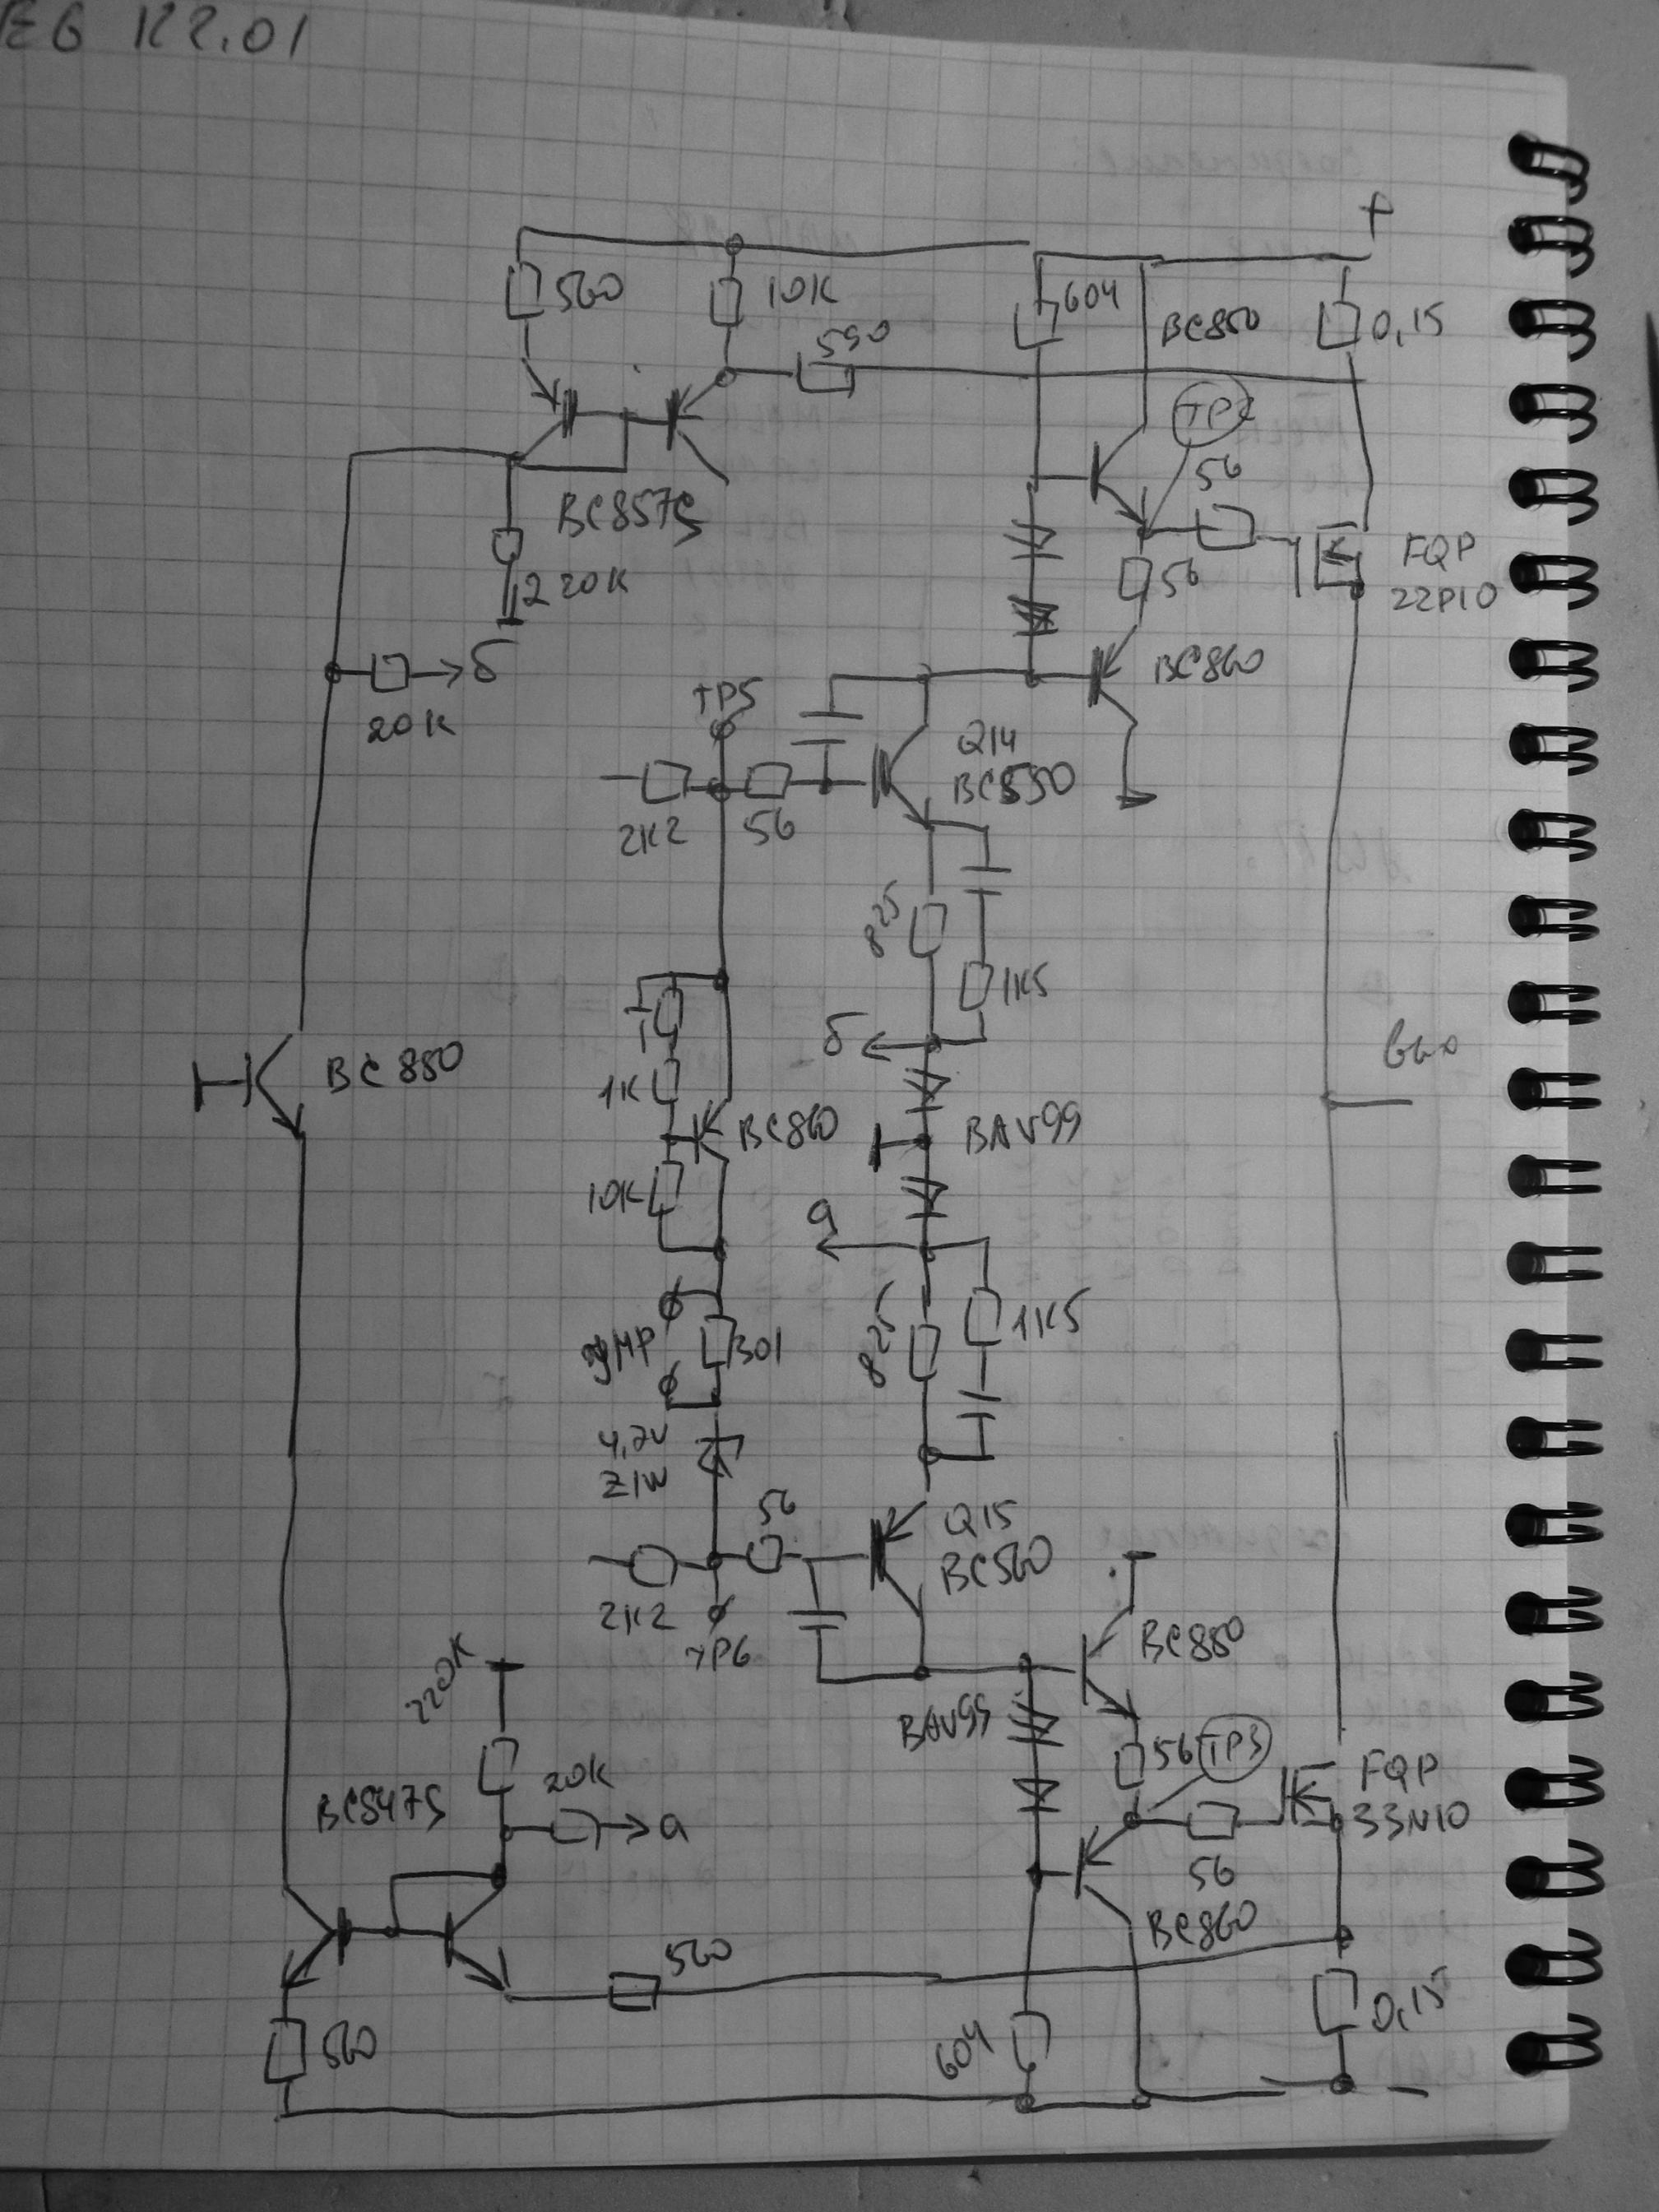 EG K2.01
+
560
10K
604
BC850
0,15
590
TP2
56
BC857S
56
FQP
22P10
220K
б
BC860
20K
TP5
Q14
BC550
2K2
56
825
1K5
б
вых
BC850
1K
BC860
BAV99
10K
a
JMP
301
825
1K5
4,7V
Z1W
56
Q15
BC560
2K2
TP6
BC850
220K
BAV99
56
TP3
BC847S
20K
a
FQP
33N10
56
BC860
560
560
604
0,15
−